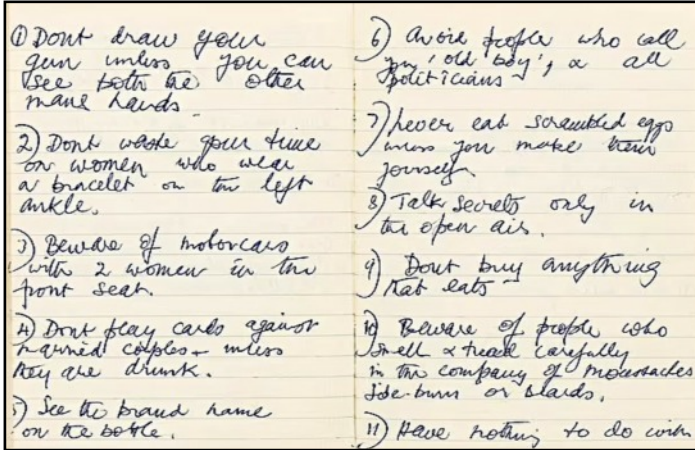 ① Dont draw your
gun unless you can
see both the other
mans hands
2) Dont waste your time
on women who wear
a bracelet on the left
ankle.
3) Beware of motorcars
with 2 women in the
front seat.
4) Dont play cards against
married couples - unless
they are drunk.
5) See the brand name
on the bottle.
6) Avoid people who call
you 'old boy', & all
politicians
7) Never eat scrambled eggs
unless you make them
yourself.
8) Talk secrets only in
the open air.
9) Dont buy anything
that eats
10 Beware of people who
smell & tread carefully
in the company of moustaches
side-burns or beards.
11) Have nothing to do with